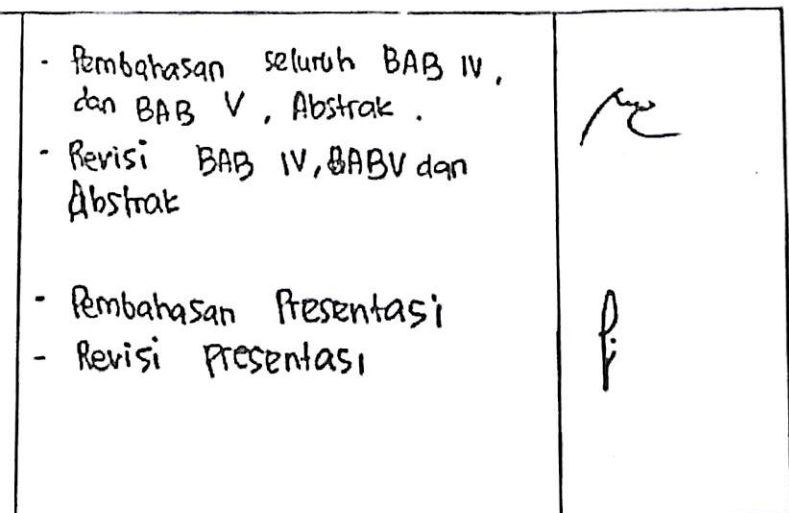 - Pembahasan seluruh BAB IV,
dan BAB V, Abstrak.
- Revisi BAB IV, BAB V dan
Abstrak
- Pembahasan Presentasi
- Revisi presentasi